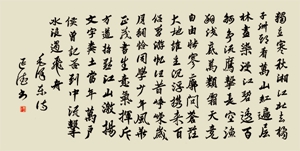 獨立寒秋湘江北去橘
子洲頭看萬山紅遍層
林盡染漫江碧透百
舸爭流鷹擊長空魚
翔淺底萬類霜天競
自由悵寥廓問蒼茫
大地誰主沉浮攜來百
侶曾游憶往昔崢嶸歲
月稠恰同學少年風華
正茂書生意氣揮斥
方遒指點江山激揚
文字糞土當年萬戶
侯曾記否到中流擊
水浪遏飛舟
毛澤東詩